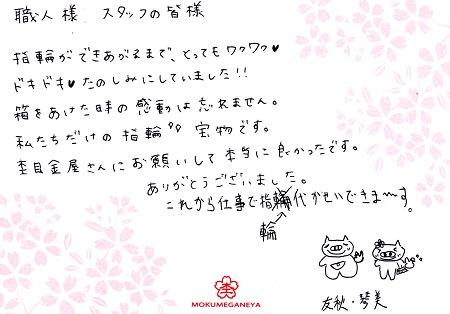 職人様 スタッフの皆様
指輪ができあがるまで、とってもワクワク♥
ドキドキ♥たのしみにしていました!!
箱をあけた時の感動は忘れません。
私たちだけの指輪 宝物です。
杢目金屋さんにお願いして本当に良かったです。
ありがとうございました。
これから仕事で指輪代かせいできまーす。
輪
友秋・琴美
MOKUMEGANEYA